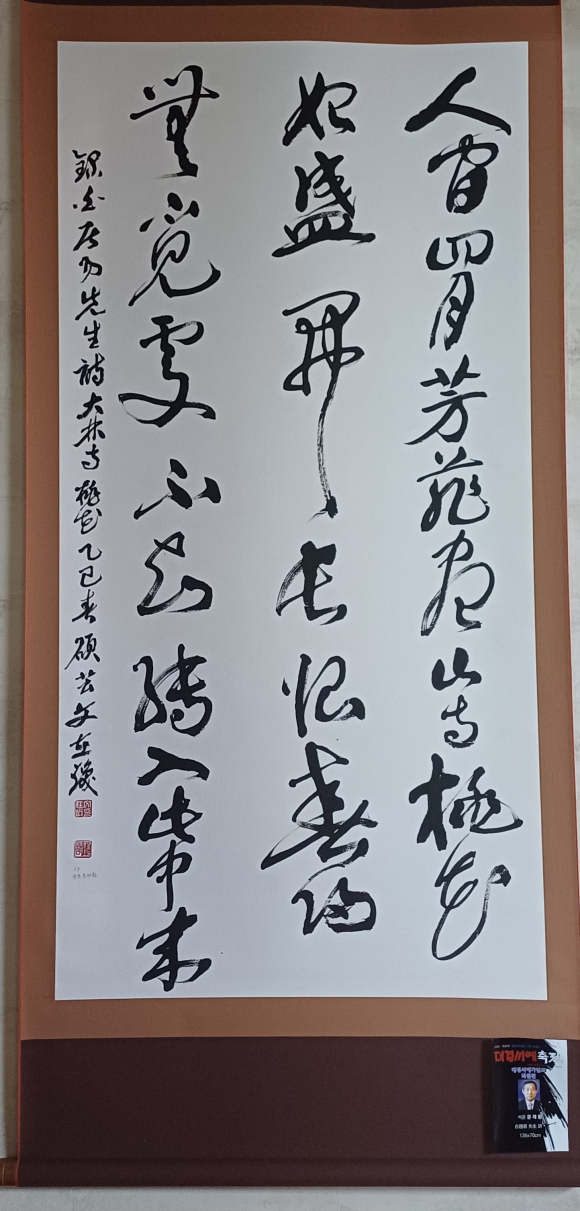 人間四月芳菲盡山寺桃花
始盛開長恨春歸
無覓處不知轉入此中來
錄白居易先生詩大林寺桃花 乙巳春 碩芸 文在
대경서예축
白居易 先生 詩
135x70cm